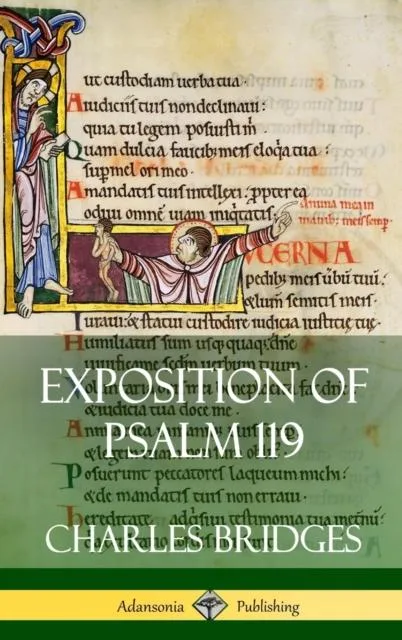 ut custodiam uerba tua.
A iudiciis tuis non declinaui:
quia tu legem posuisti m̄.
Quam dulcia faucib; meis eloqa tua:
sup mel ori meo.
A mandatis tuis intellexi: ppter ea
odiui omnē uiam iniqtatis.
anima mea in
manib; meis semp.
UCERNA
pedib; meis ūbū tuū:
& lum semitis meis.
Iuraui: & statui custodire iudicia iusticie tuę.
Humiliatus sum usq quaq; dn̄e
uerbum tuum.
EXPOSITION OF
& iudicia tua doce me.
PSALM 119
& legem
Posuerunt peccatores laqueum michi:
& de mandatis tuis non erraui.
Hereditate adqsiui testimonia tua
CHARLES BRIDGES
Adansonia Publishing